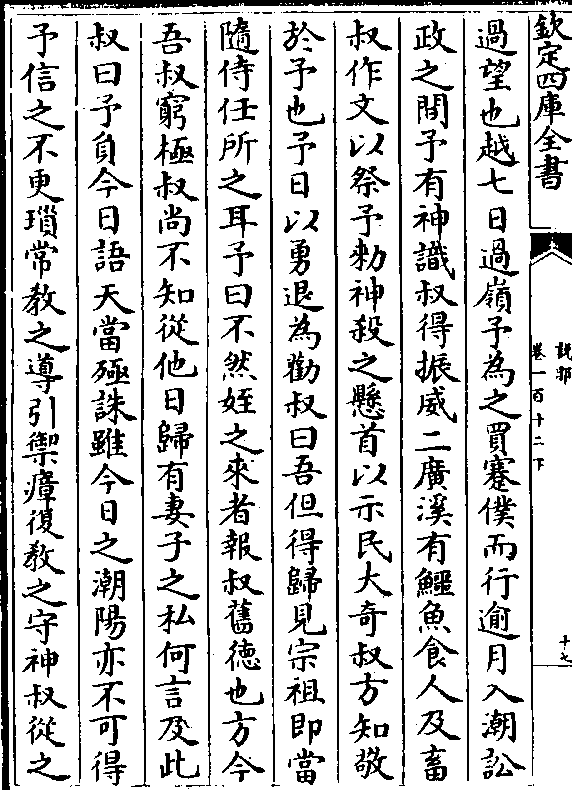 欽定四庫全書
說郛
卷一百十二下
十七
過望也越七日過嶺予為之買蹇僕而行逾月入潮訟
政之間予有神識叔得振威二廣溪有鱷魚食人及畜
叔作文以祭予勑神殺之懸首以示民大奇叔方知敬
於予也予日以勇退為勸叔曰吾但得歸見宗祖即當
隨侍任所之耳予曰不然姪之來者報叔舊徳也方今
吾叔窮極叔尚不知從他日歸有妻子之私何言及此
叔曰予自今日語天當殛誅雖今日之潮陽亦不可得
予信之不更瑣常教之導引禦瘴復教之守神叔從之